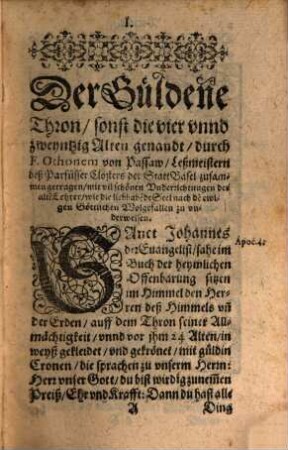 I.
Der Güldene
Thron / sonst die vier vnnd
zwenntzig Alten genandt / durch
F. Othonem von Passaw / Leßmeistern
deß Parfüsser Closters der Statt Basel zusam-
men getragen / mit vil schönen Vnderrichtungen der
alten Lehrer / wie die liebhabēde Seel nach dē ewi-
gen Göttlichen Wolgefallen zu vn-
derweisen.
SAnct Johannes
der Euangelist / sahe im
Buch der heymlichen
Offenbarung sitzen
im Himmel den Her-
ren deß Himmels vñ
der Erden / auff dem Thron seiner All-
mächtigkeit / vnnd vor jhm 24 Alten / in
weyß gekleidet / vnd gekrönet / mit güldin
Cronen / die sprachen zu vnserm Herrn:
Herr vnser Gott / du bist wirdig zunemēn
Preiß / Ehr vnd Krafft: Dann du hast alle
A Ding
Apoc. 4.